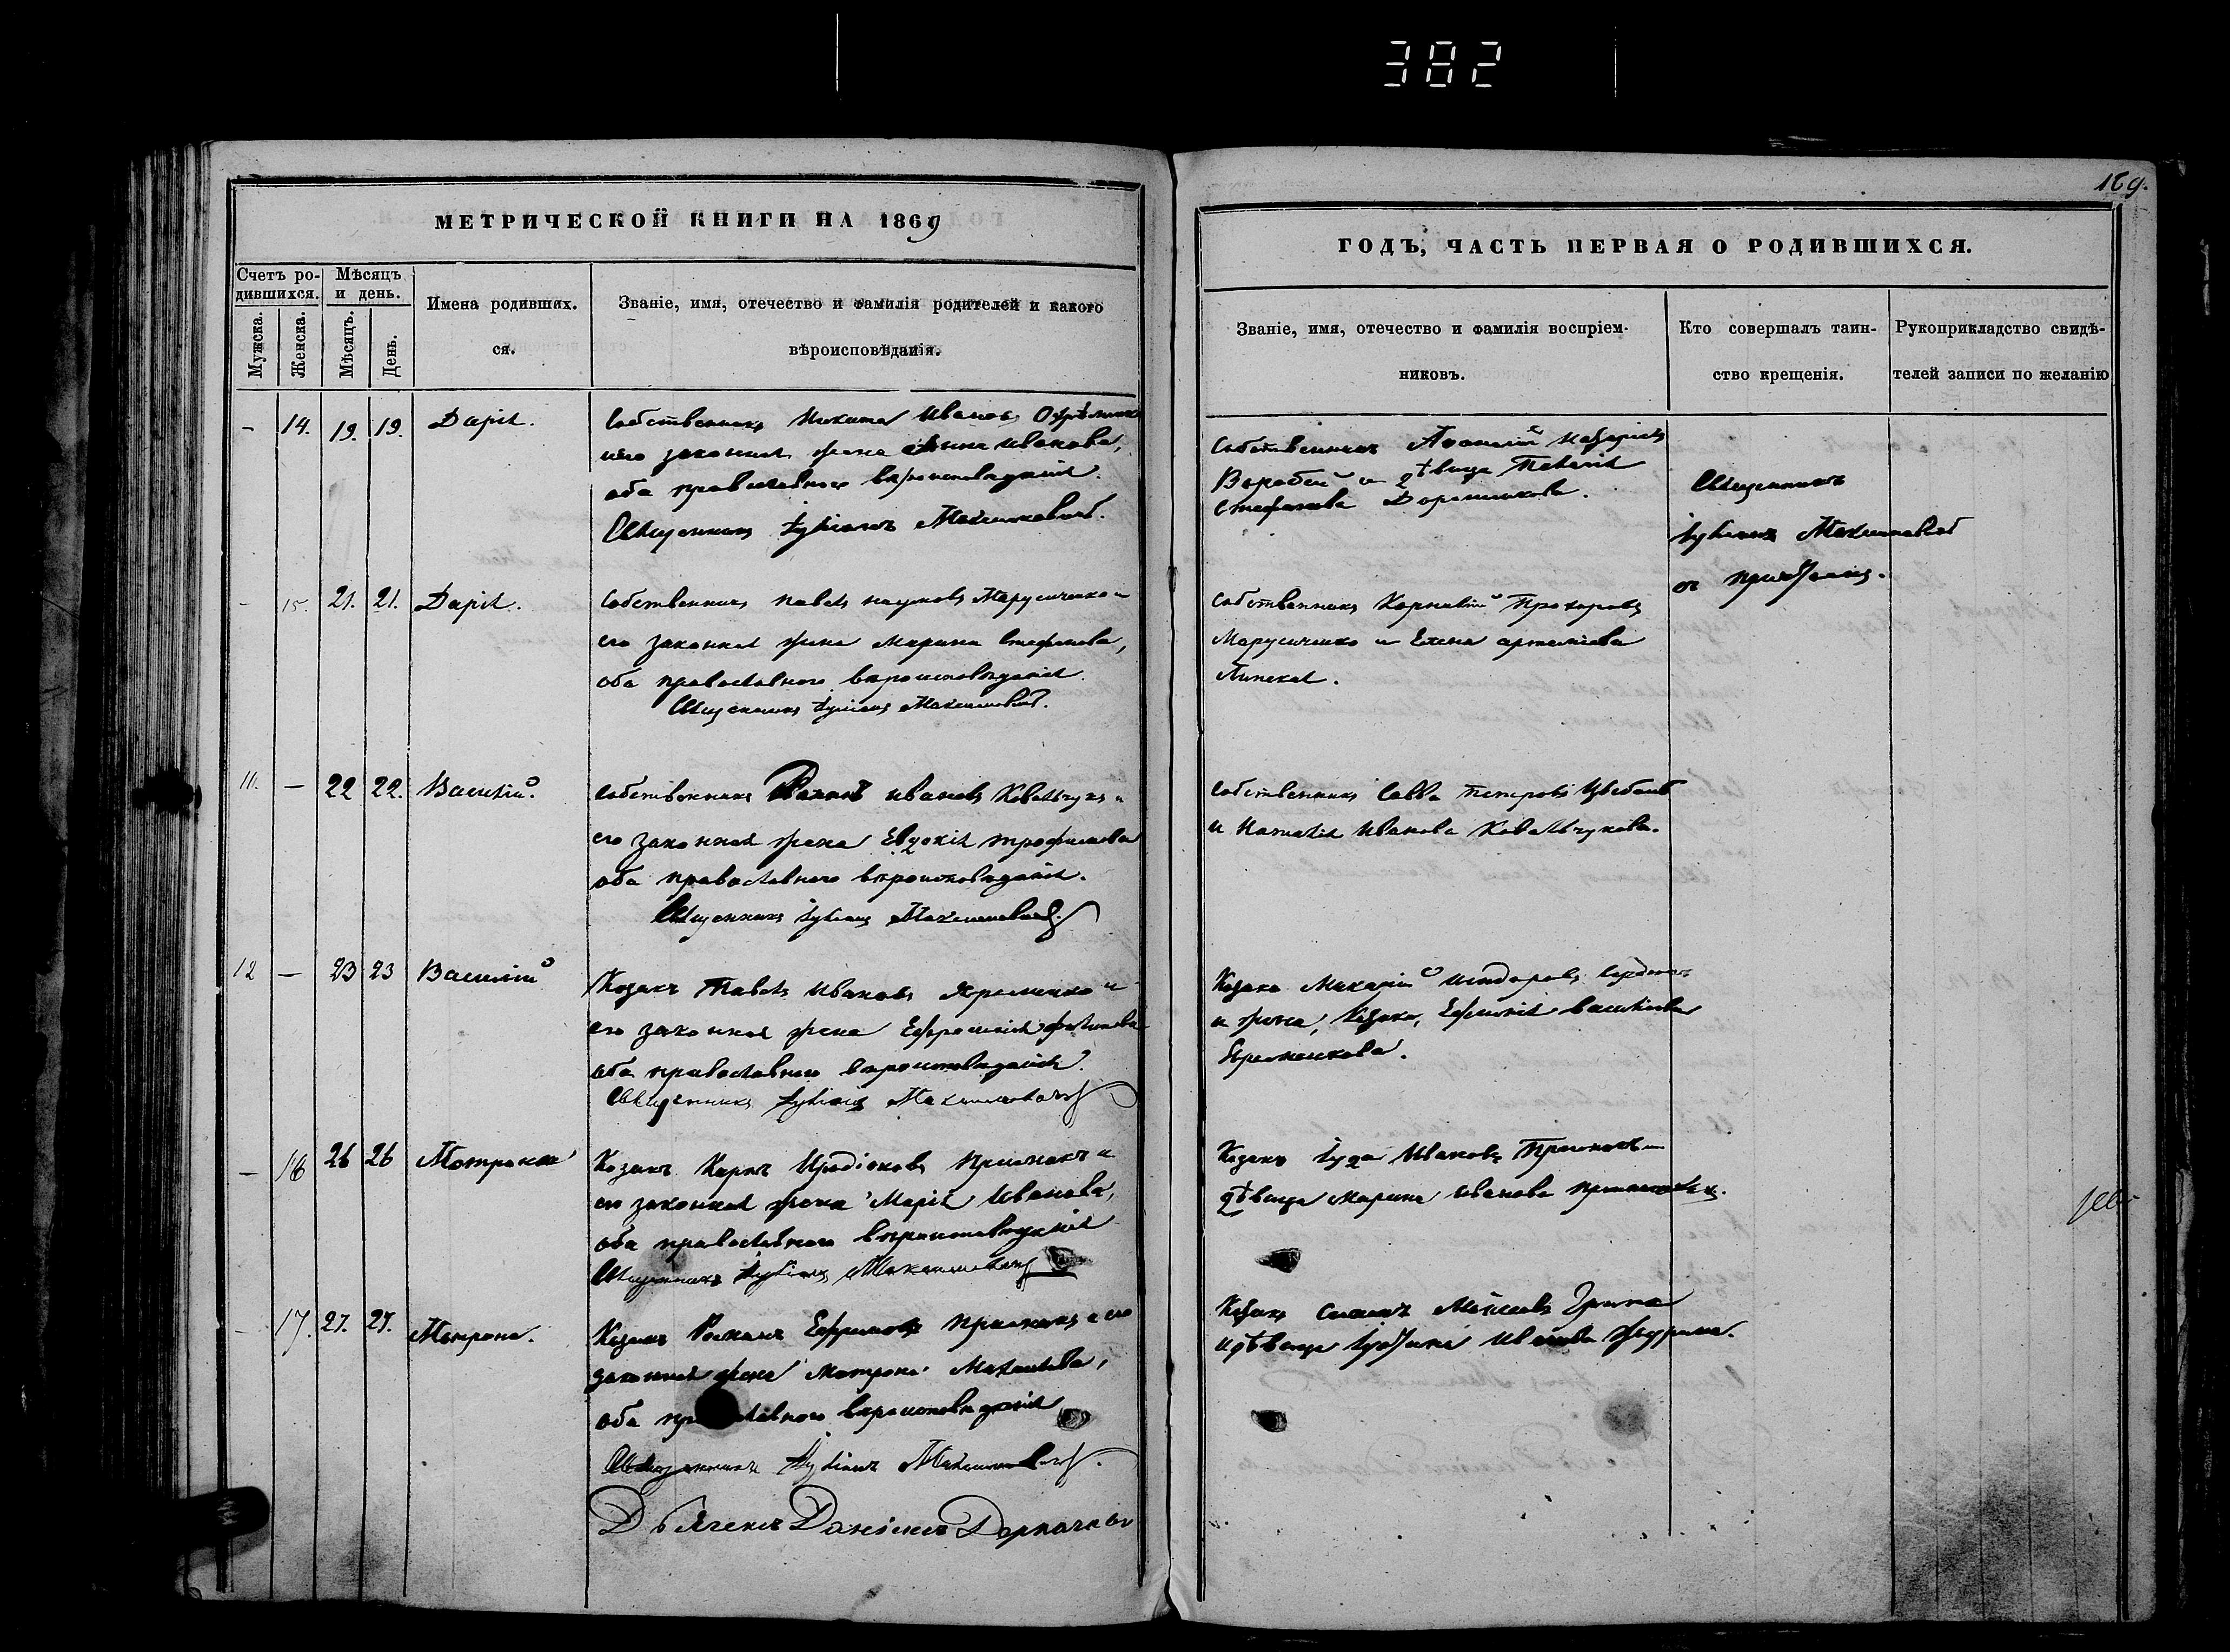 382
169.
МЕТРИЧЕСКОЙ КНИГИ НА 1869
Счетъ ро-
дившихся.
Мужска.
Женска.
Мѣсяцъ
и день.
Мѣсяцъ.
День.
Имена родивших.
ся.
Званіе, имя, отечество и фамилія родителей и какого
вѣроисповѣданія.
– 14. 19. 19. Дарія.
Собственникъ Никита Ивановъ
его законная жена Анна Иванова,
оба православнаго вѣроисповѣданія.
Священникъ Іуліанъ Максимовичъ.
– 15. 21. 21. Дарія.
Собственникъ Павелъ Наумовъ Марусиченко и
его законная жена Марина Стефанова,
оба православнаго вѣроисповѣданія.
Священникъ Іуліанъ Максимовичъ.
11. – 22 22. Василій.
Собственникъ Романъ Ивановъ Ковальчукъ и
его законная жена Евдокія Трофимова
оба православнаго вѣроисповѣданія.
Священникъ Іуліанъ Максимовичъ.
12 – 23 23 Василій
Козакъ Павелъ Ивановъ Яременко и
его законная жена Ефросинія
оба православнаго вѣроисповѣданія.
Священникъ Іуліанъ Максимовичъ
– 16 26 26 Матрона
Козакъ Карпъ Иродіоновъ Приймакъ и
его законная жена Марія Иванова,
оба православнаго вѣроисповѣданія
Священникъ Іуліанъ Максимовичъ
– 17. 27. 27. Матрона.
Козакъ Романъ Ефремовъ Приймакъ и его
законная жена Матрона Михайлова,
оба православнаго вѣроисповѣданія
Священникъ Іуліанъ Максимовичъ.
Дьячекъ Даніилъ
ГОДЪ, ЧАСТЬ ПЕРВАЯ О РОДИВШИХСЯ.
Званіе, имя, отечество и фамилія воспріем-
никовъ.
Кто совершалъ таин-
ство крещенія.
Рукоприкладство свидѣ-
телей записи по желанію
Собственникъ Назаріевъ
Воробей и дѣвица Пелагія
Стефанова
Священникъ
Іуліанъ Максимовичъ
съ причтомъ.
Собственникъ Корнилій Прохоровъ
Марусиченко и Елена Артеміева
Липская.
Собственникъ Савва Петровъ
и Наталія Иванова Ковальчукова.
Козакъ Макарій Исидоровъ
и жена, Козака, Васильева
Яременкова.
Козакъ Іуда Ивановъ Приймакъ и
дѣвица Марина Иванова
Козакъ Моисеевъ
и дѣвица Іустина